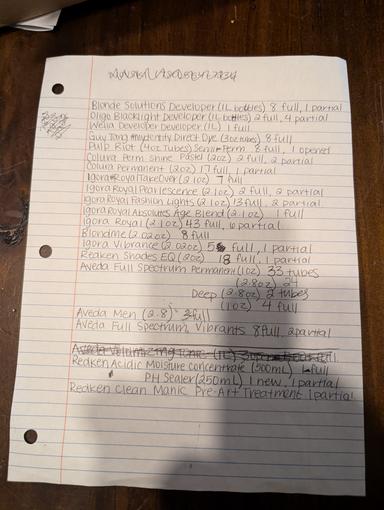 Blonde Solutions Developer (1L bottles) 8 full, 1 partial
Oligo Blacklight Developer (1L bottles) 2 full, 4 partial
Wella Developer Developer (1L) 1 full
Guy Tang #mydentity Direct Dye (3oz tubes) 8 full
Pulp Riot (4oz Tubes) Semi-Perm 8 full, 1 opened
Colura Perm Shine Pastel (2oz) 2 full, 2 partial
Colura Permanent (2oz) 17 full, 1 partial
Igora Royal TakeOver (2.1oz) 7 full
Igora Royal Pearlescence (2.1oz) 2 full, 2 partial
Igora Royal Fashion Lights (2.1oz) 13 full, 2 partial
Igora Royal Absolutes Age Blend (2.1oz) 1 full
Igora Royal (2.1oz) 43 full, 6 partial
Blondme (2.02oz) 8 full
Igora Vibrance (2.02oz) full, 1 partial
Redken Shades EQ (2oz) 18 full, 1 partial
Aveda Full Spectrum Permanent (1oz) 33 tubes
(2.8oz) 24
Deep (2.8oz) 2 tubes
(1oz) 4 full
Aveda Men (2.8) full
Aveda Full Spectrum Vibrants 8 full, 2 partial
Redken Acidic Moisture Concentrate (500mL) full
PH Sealer (250mL) 1 new, 1 partial
Redken Clean Manic Pre-Art Treatment 1 partial